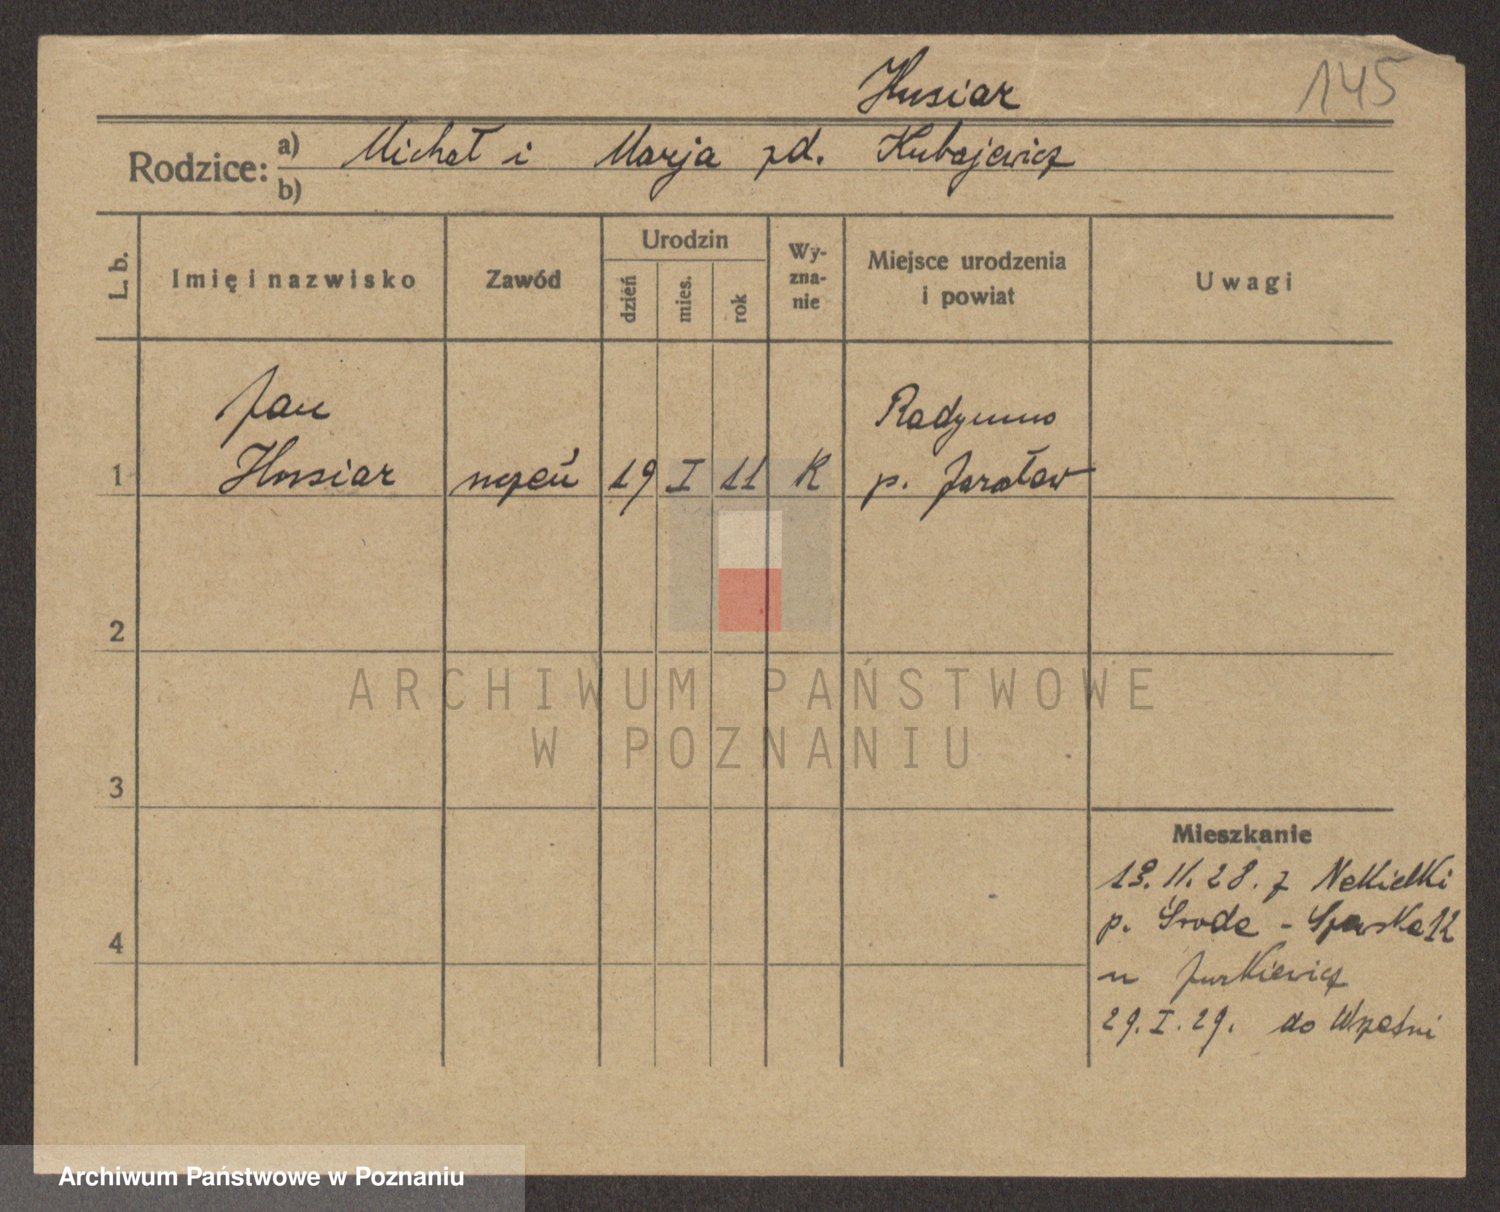 Husiar
145
Rodzice: a) Michał i Marja zd. Kubajewicz
b)
L. b.
Imię i nazwisko
Zawód
Urodzin
dzień
mies.
rok
Wy-
zna-
nie
Miejsce urodzenia
i powiat
Uwagi
Jan
Radymno
1 Husiar uczeń 19 I 11 K p. Jarosław
2
ARCHIWUM PAŃSTWOWE
W POZNANIU
3
Mieszkanie
19. 11. 28. z Nekielki
p. Środa - 12
4
u Jurkiewicz
29. I. 29. do Wrześni
Archiwum Państwowe w Poznaniu